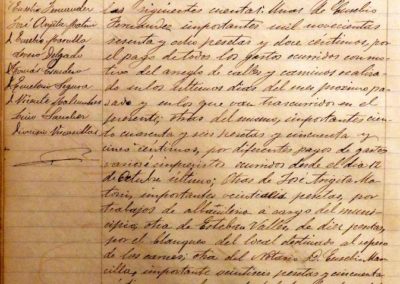 Eusebio Fernandez
José Angita Motos
D. Eusebio Morcillo
Alonso Delgado
Tomás Escudero
D. Vicente
Luis Sanchez
las siguientes cuentas: Unas de Eusebio
Fernandez importantes mil novecientas
sesenta y ocho pesetas y doce céntimos, por
el pago de todos los gastos ocurridos con mo-
tivo del arreglo de calles y caminos ocurri
do en los últimos dias del mes proximo pa-
sado y en los que van trascurridos en el
presente; otras del mismo, importantes cien-
to cuarenta y seis pesetas y cincuenta y
cinco céntimos, por diferentes pagos de gastos
varios é imprevistos ocurridos desde el dia 12
de Octubre último; Otras de José Angita Mo-
tos, importantes pesetas, por
trabajos de albañileria á cargo del muni-
cipio; otra de Esteban Valles, de diez pesetas,
por el blanqueo del local destinado al repeso
de las carnes; otra del Notario D. Eusebio Mor-
cillo, importante veinticinco pesetas y cincuenta